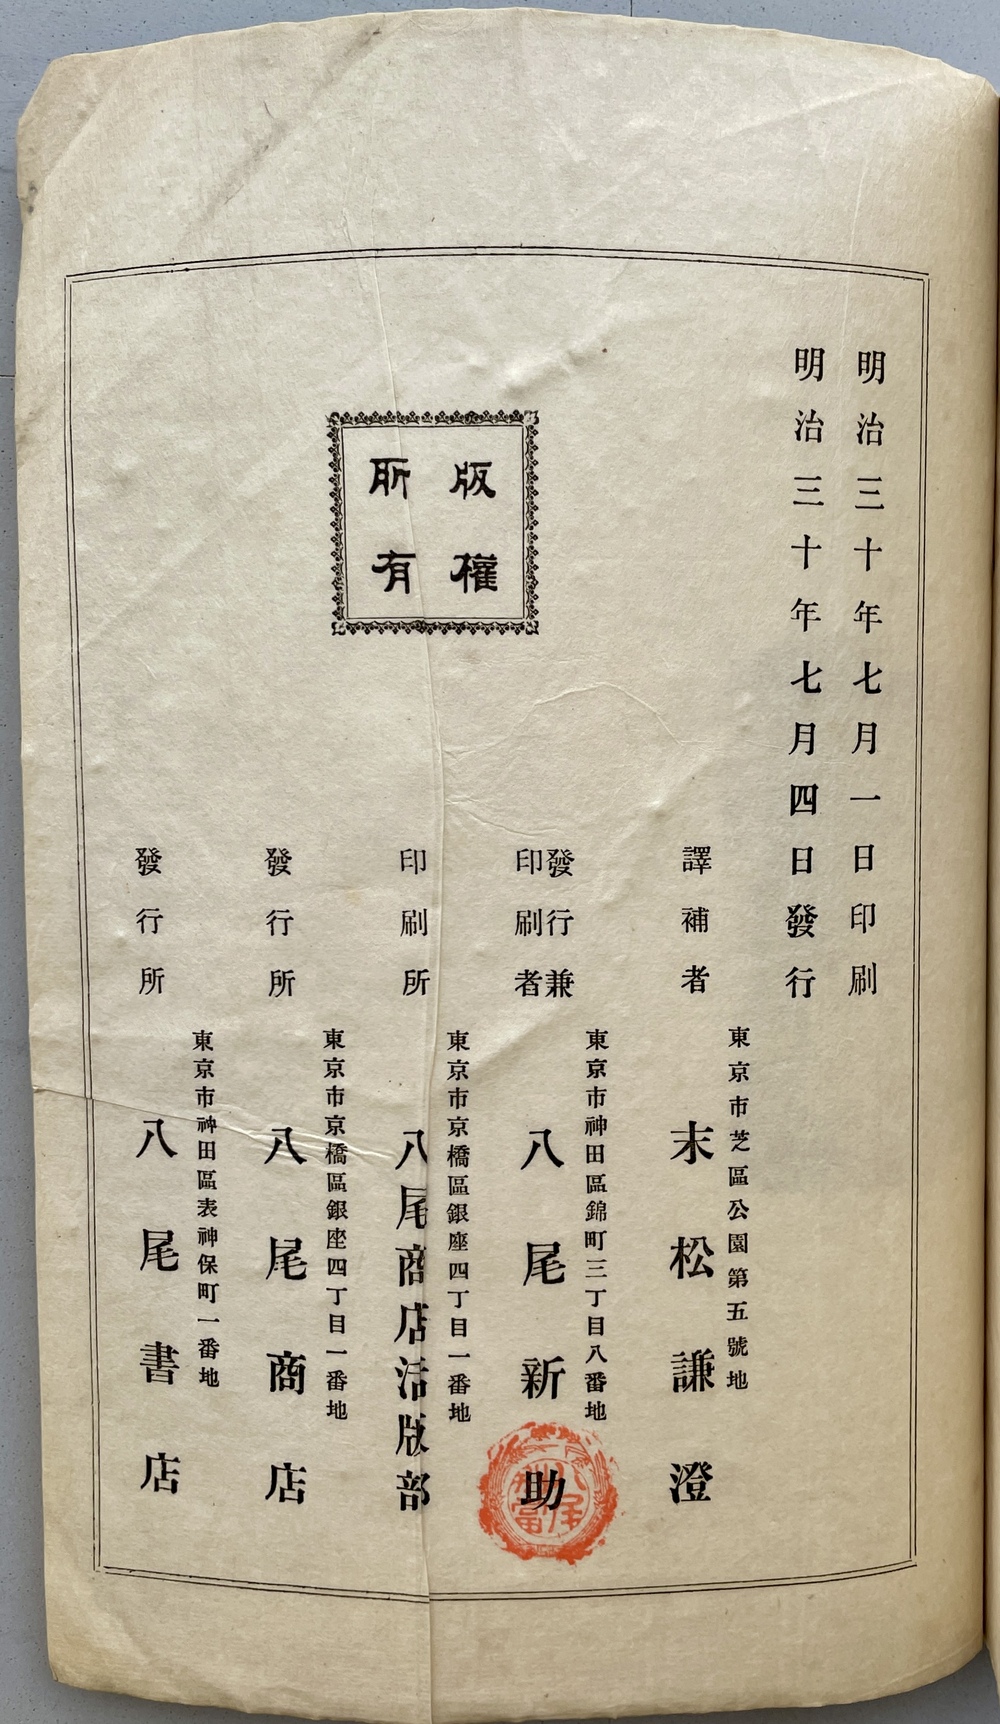 明治三十年七月一日印刷
明治三十年七月四日發行
版權
所有
東京市芝區公園第五號地
譯補者
末松謙澄
東京市神田區錦町三丁目八番地
發行兼
印刷者
八尾新助
東京市京橋區銀座四丁目一番地
印刷所
八尾商店活版部
東京市京橋區銀座四丁目一番地
發行所
八尾商店
東京市神田區表神保町一番地
發行所
八尾書店